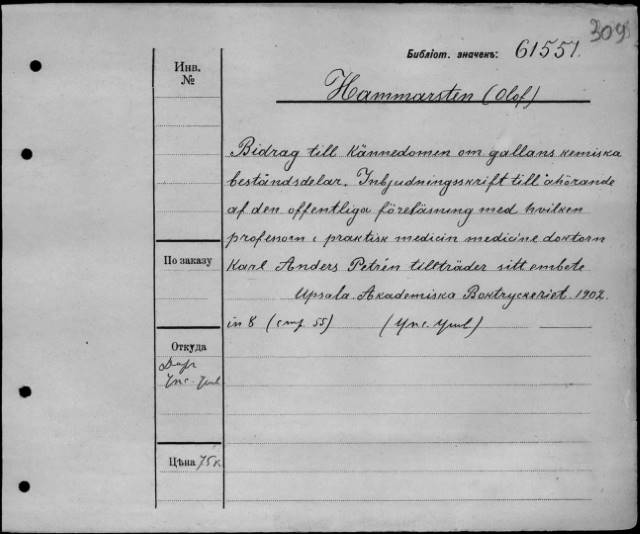 309
Библіот. значекъ: 61551.
Инв.
№
Hammarsten (Olof)
Bidrag till Kännedomen om gallans kemiska
beståndsdelar. Inbjudningsskrift till åhörande
af den offentliga föreläsning med hvilken
professorn i praktisk medicin medicine doktorn
Karl Anders Petrén tillträder sitt embete
По заказу
Upsala. Akademiska Boktryckeriet. 1902.
in 8 (стр 55) (Упс. Унив)
Откуда
Дар
Упс. Унив
Цѣна 75к